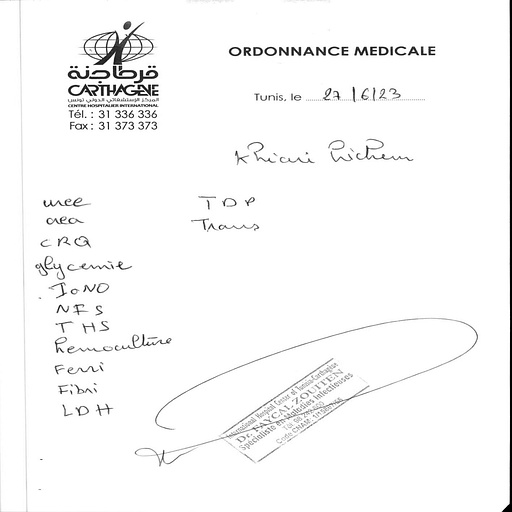 قرطاجنة
CARTHAGENE
المركز الإستشفائي الدولي تونس
CENTRE HOSPITALIER INTERNATIONAL
Tél. : 31 336 336
Fax : 31 373 373
ORDONNANCE MEDICALE
Tunis, le 27/6/23
Khiari Hichem
uree
crea
CRP
glycemie
IoNO
NFS
THS
hemoculture
Ferri
Fibri
LDH
TDP
Trans
International Hospital Center of Tunisia-Carthagène
Dr. FAYCAL ZOUITEN
Spécialiste en Maladies Infectieuses
Code CNAM :